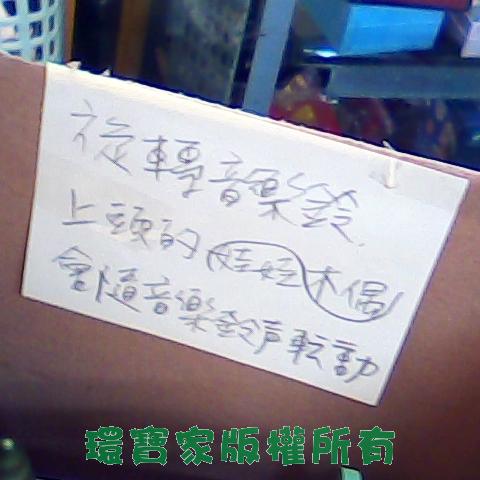 旋轉音樂鈴
上頭的木偶娃娃
會隨音樂鈴声転動
環寶家版權所有